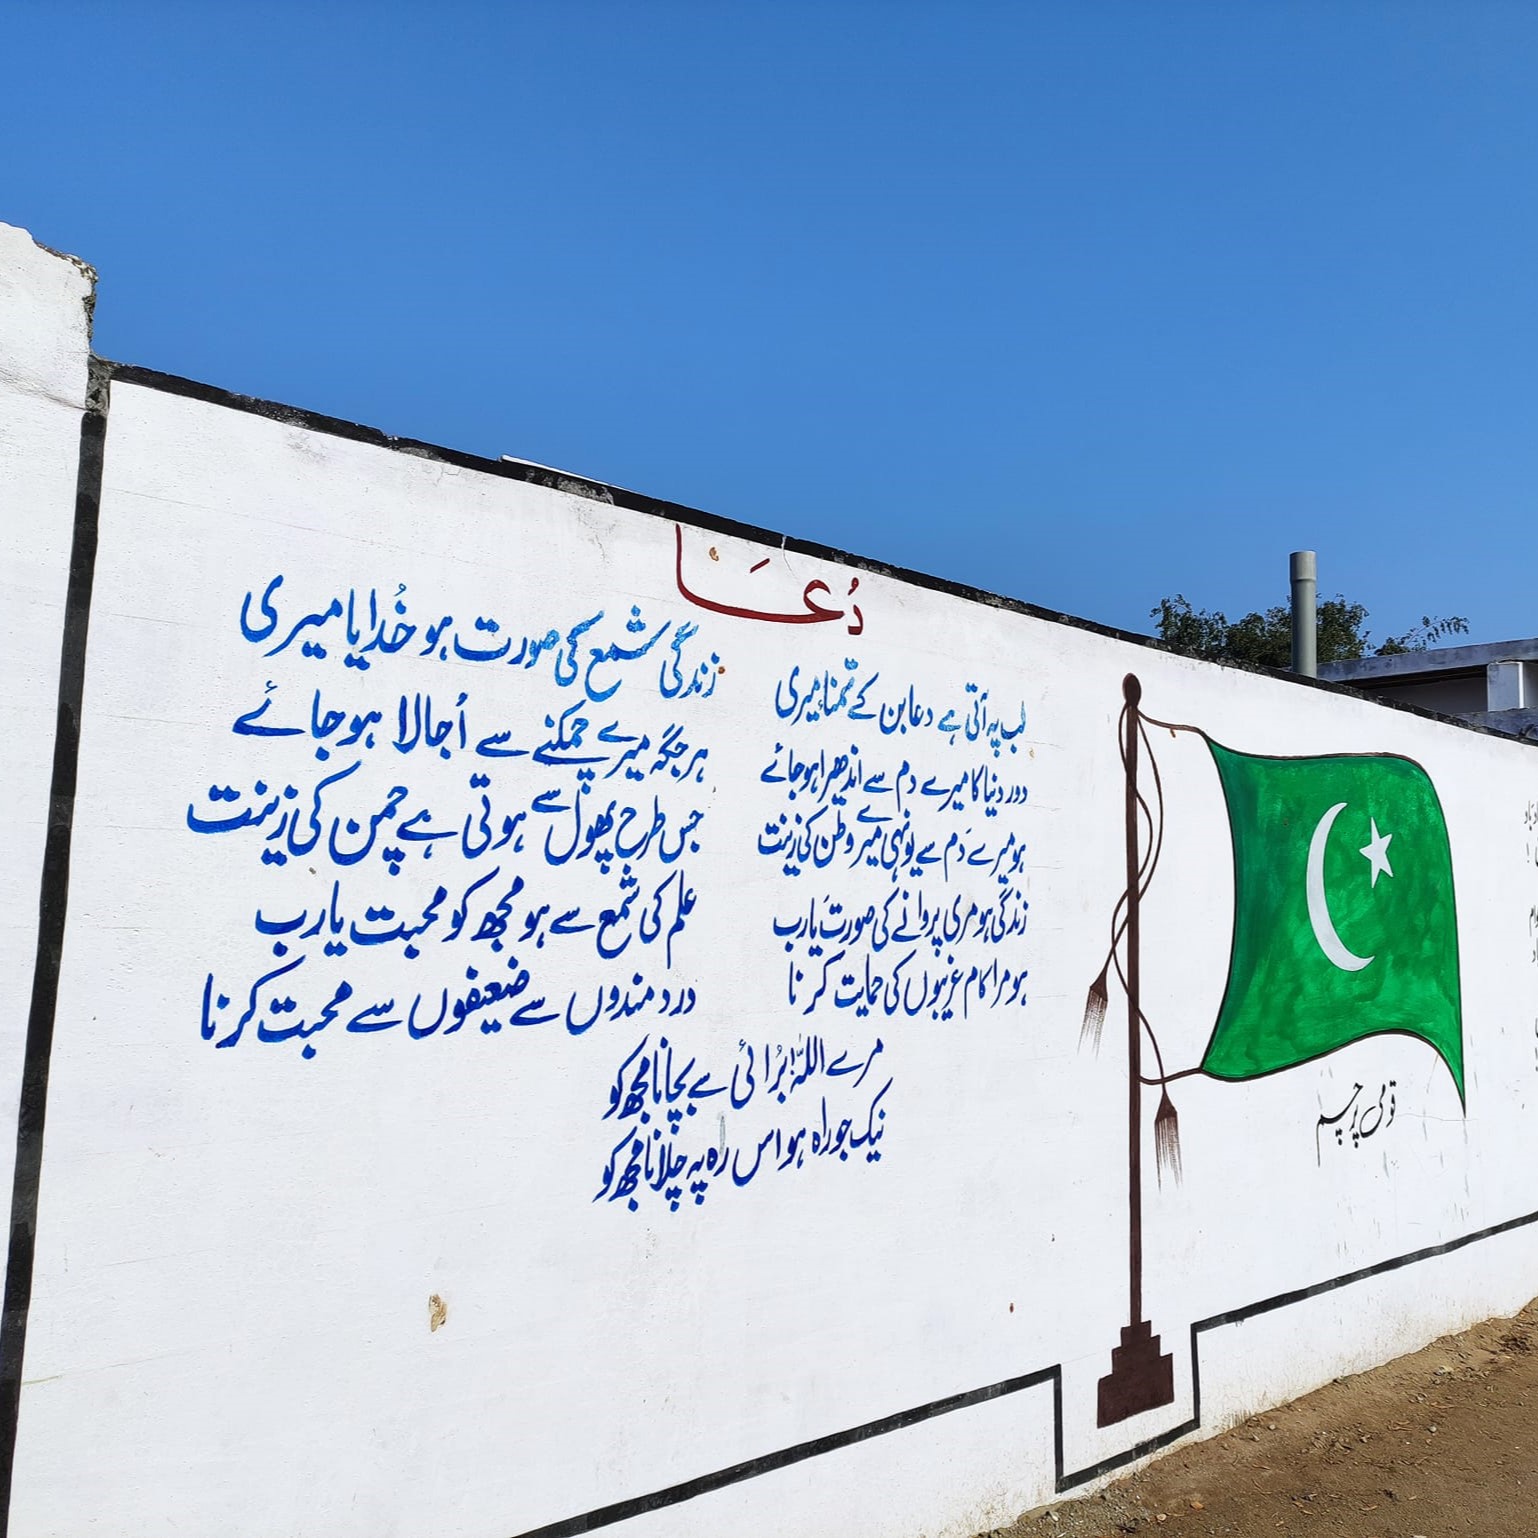 دُعَا
لب پہ آتی ہے دعا بن کے تمنا میری
زندگی شمع کی صورت ہو خُدایا میری
دور دنیا کا میرے دم سے اندھیرا ہو جائے
ہر جگہ میرے چمکنے سے اُجالا ہو جائے
ہو میرے دَم سے یونہی میرے وطن کی زینت
جس طرح پھول سے ہوتی ہے چمن کی زینت
زندگی ہو مری پروانے کی صورت یارب
علم کی شمع سے ہو مجھ کو محبت یارب
ہو مرا کام غریبوں کی حمایت کرنا
درد مندوں سے ضعیفوں سے محبت کرنا
مرے اللہ! بُرائی سے بچانا مجھ کو
نیک جو راہ ہو اس راہ پہ چلانا مجھ کو
قومی پرچم